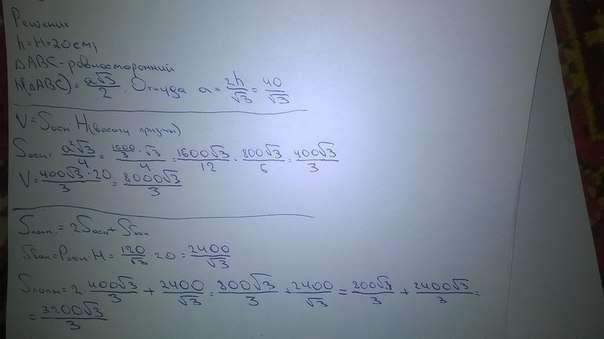 Решение
h=H=20см,
△ABC - равносторонний
h(△ABC)= a√3/2. Откуда a= 2h/√3 = 40/√3
V=Sосн H(высоты призмы)
Sосн= a²√3/4 = 1600/3·√3/4 = 1600√3/12 = 800√3/6 = 400√3/3
V= 400√3·20/3 = 8000√3/3
Sполн.=2Sосн+Sбок
Sбок=Pосн·H= 120/√3·20= 2400/√3
Sполн=2·400√3/3 + 2400/√3 = 800√3/3 + 2400/√3 = 800√3/3 + 2400√3/3 =
= 3200√3/3